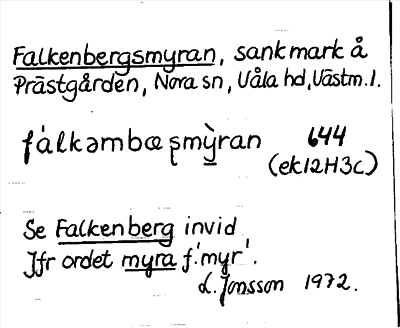 Falkenbergsmyran, sankmark å
Prästgården, Nora sn, Våla hd, Västm.l.
fàlkəmbæʂmỳran 644
(ek12H3c)
Se Falkenberg invid
Jfr ordet myra f. 'myr'.
L. Jonsson 1972.